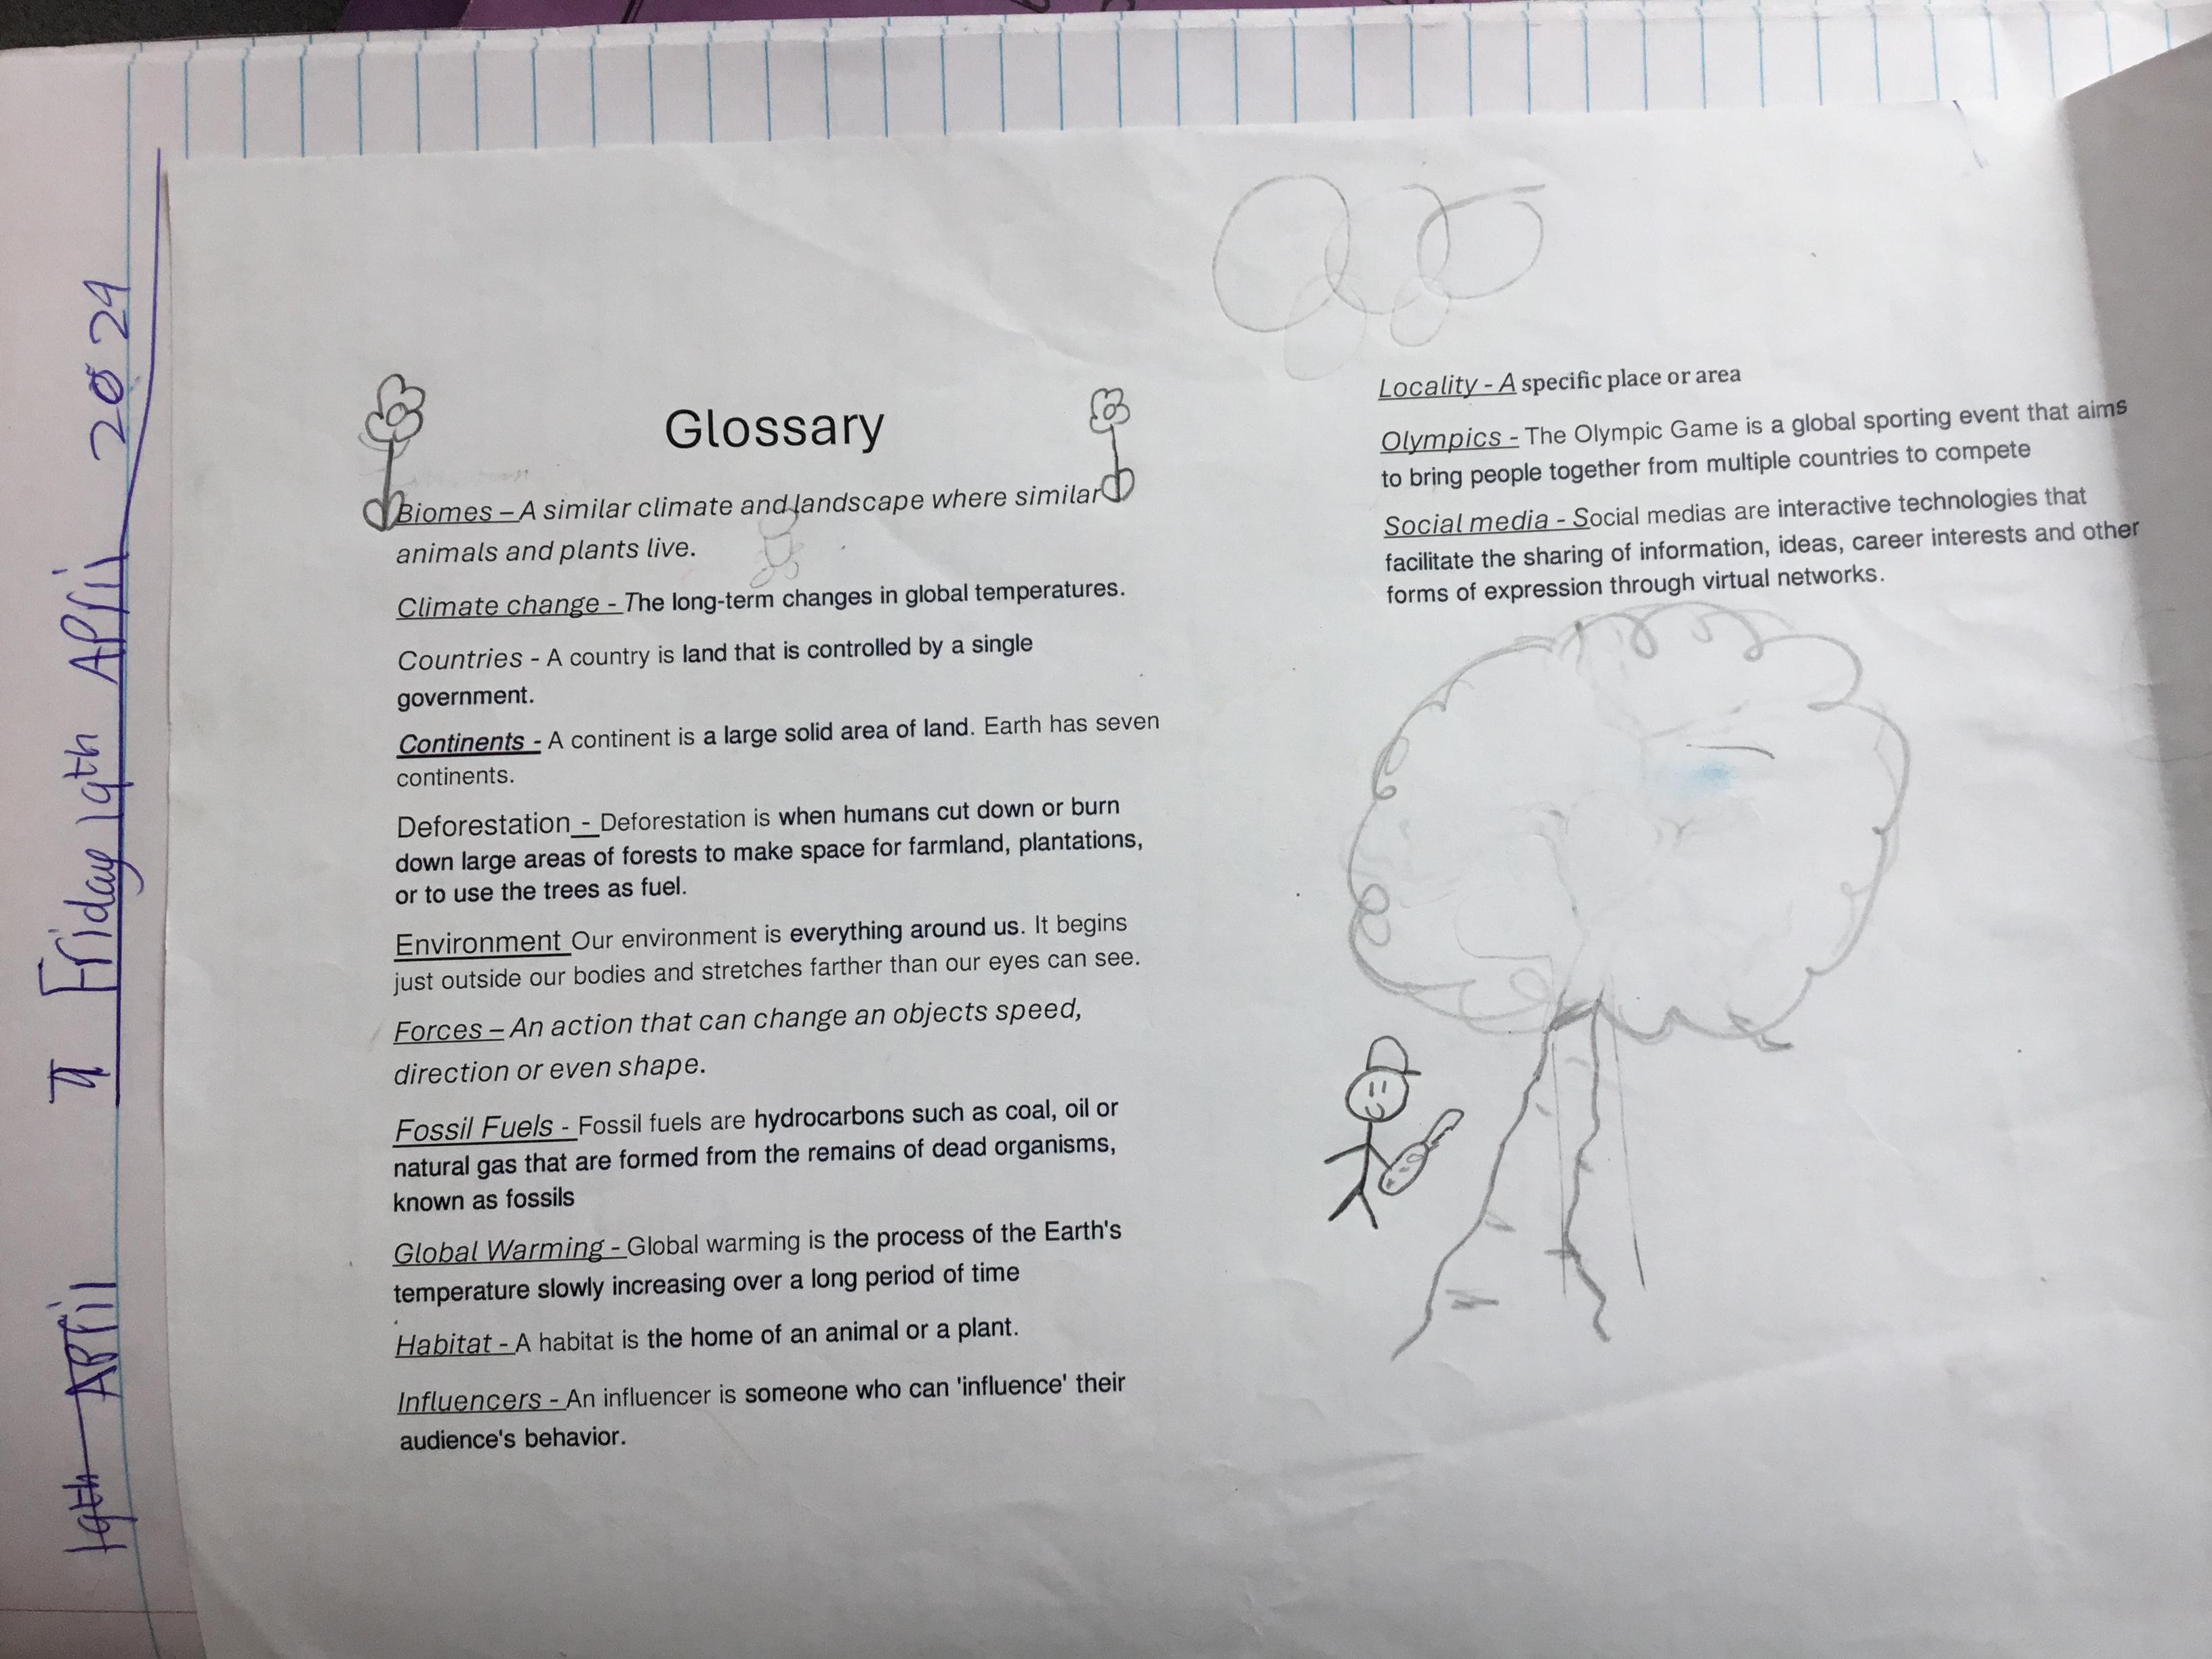 Glossary
Biomes – A similar climate and landscape where similar
animals and plants live.
Climate change - The long-term changes in global temperatures.
Countries - A country is land that is controlled by a single
government.
Continents - A continent is a large solid area of land. Earth has seven
continents.
Deforestation - Deforestation is when humans cut down or burn
down large areas of forests to make space for farmland, plantations,
or to use the trees as fuel.
Environment Our environment is everything around us. It begins
just outside our bodies and stretches farther than our eyes can see.
Forces – An action that can change an objects speed,
direction or even shape.
Fossil Fuels - Fossil fuels are hydrocarbons such as coal, oil or
natural gas that are formed from the remains of dead organisms,
known as fossils
Global Warming - Global warming is the process of the Earth's
temperature slowly increasing over a long period of time
Habitat - A habitat is the home of an animal or a plant.
Influencers - An influencer is someone who can 'influence' their
audience's behavior.
Locality - A specific place or area
Olympics - The Olympic Game is a global sporting event that aims
to bring people together from multiple countries to compete
Social media - Social medias are interactive technologies that
facilitate the sharing of information, ideas, career interests and other
forms of expression through virtual networks.
19th April Friday 19th April 2024